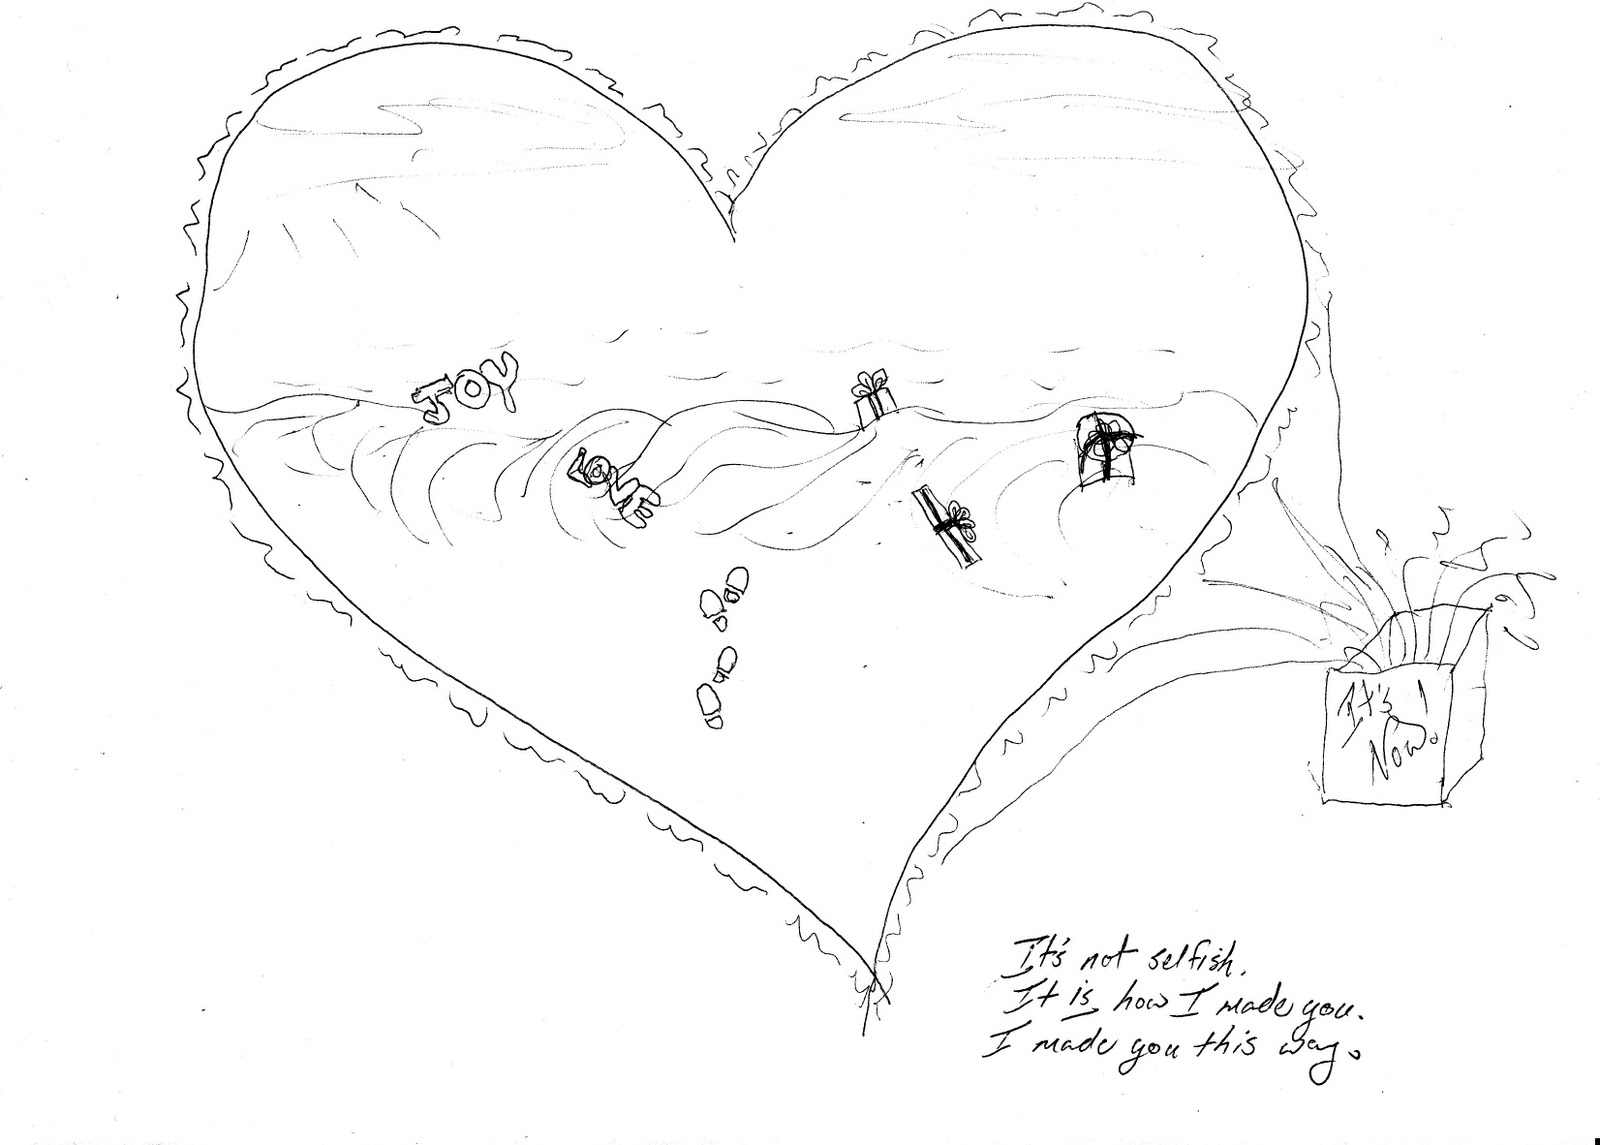 JOY
LOVE
It's
Now!
It's not selfish.
It is how I made you.
I made you this way.